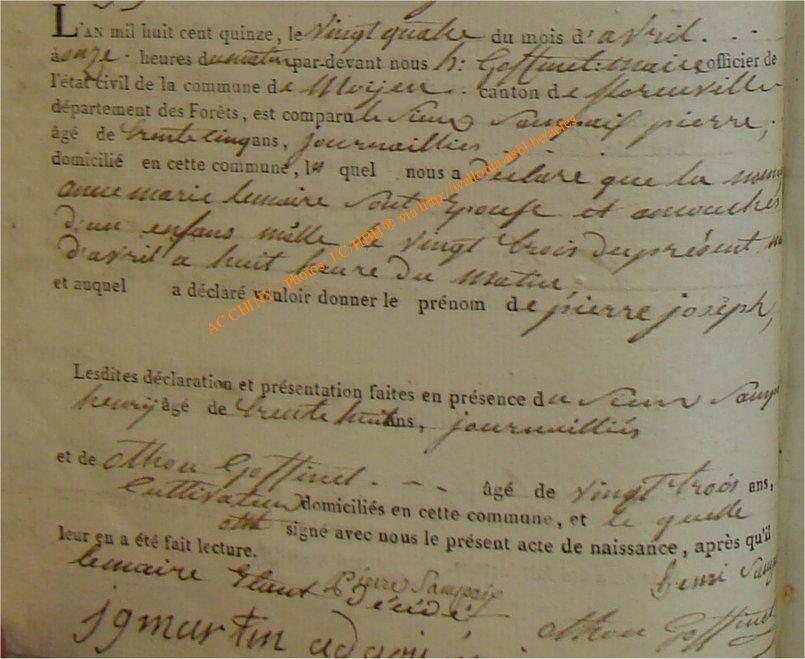 L'AN mil huit cent quinze, le vingt quatre du mois d'avril. - -
à onze - heures du matin par-devant nous h: Goffinet: maire officier de
l'état civil de la commune de Moyen - . canton de florenville
département des Forêts, est comparu le Sieur Sampaix pierre,
âgé de trente cinq ans, journailliés
domicilié en cette commune, le quel nous a déclaré que la nommé
anne marie lemaire Sont Epouse et acouchés
d'un enfans mâlle le vingt trois du présent
d'avril a huit heure du matin,
et auquel a déclaré vouloir donner le prénom de pierre joseph,
Lesdites déclaration et présentation faites en présence du Sieur
henry âgé de trente huit ans, journailliés
et de othon Goffinet - - - âgé de vingt trois ans,
Cultivateur domiciliés en cette commune, et
signé avec nous le présent acte de naissance, après qu'il
leur en a été fait lecture.
lemaire Etant Pierre Sampaix henri
othon Goffinet
j g martin
AC CHINY - photos J C HBH ® via http://wallonia-asbl.be/actes